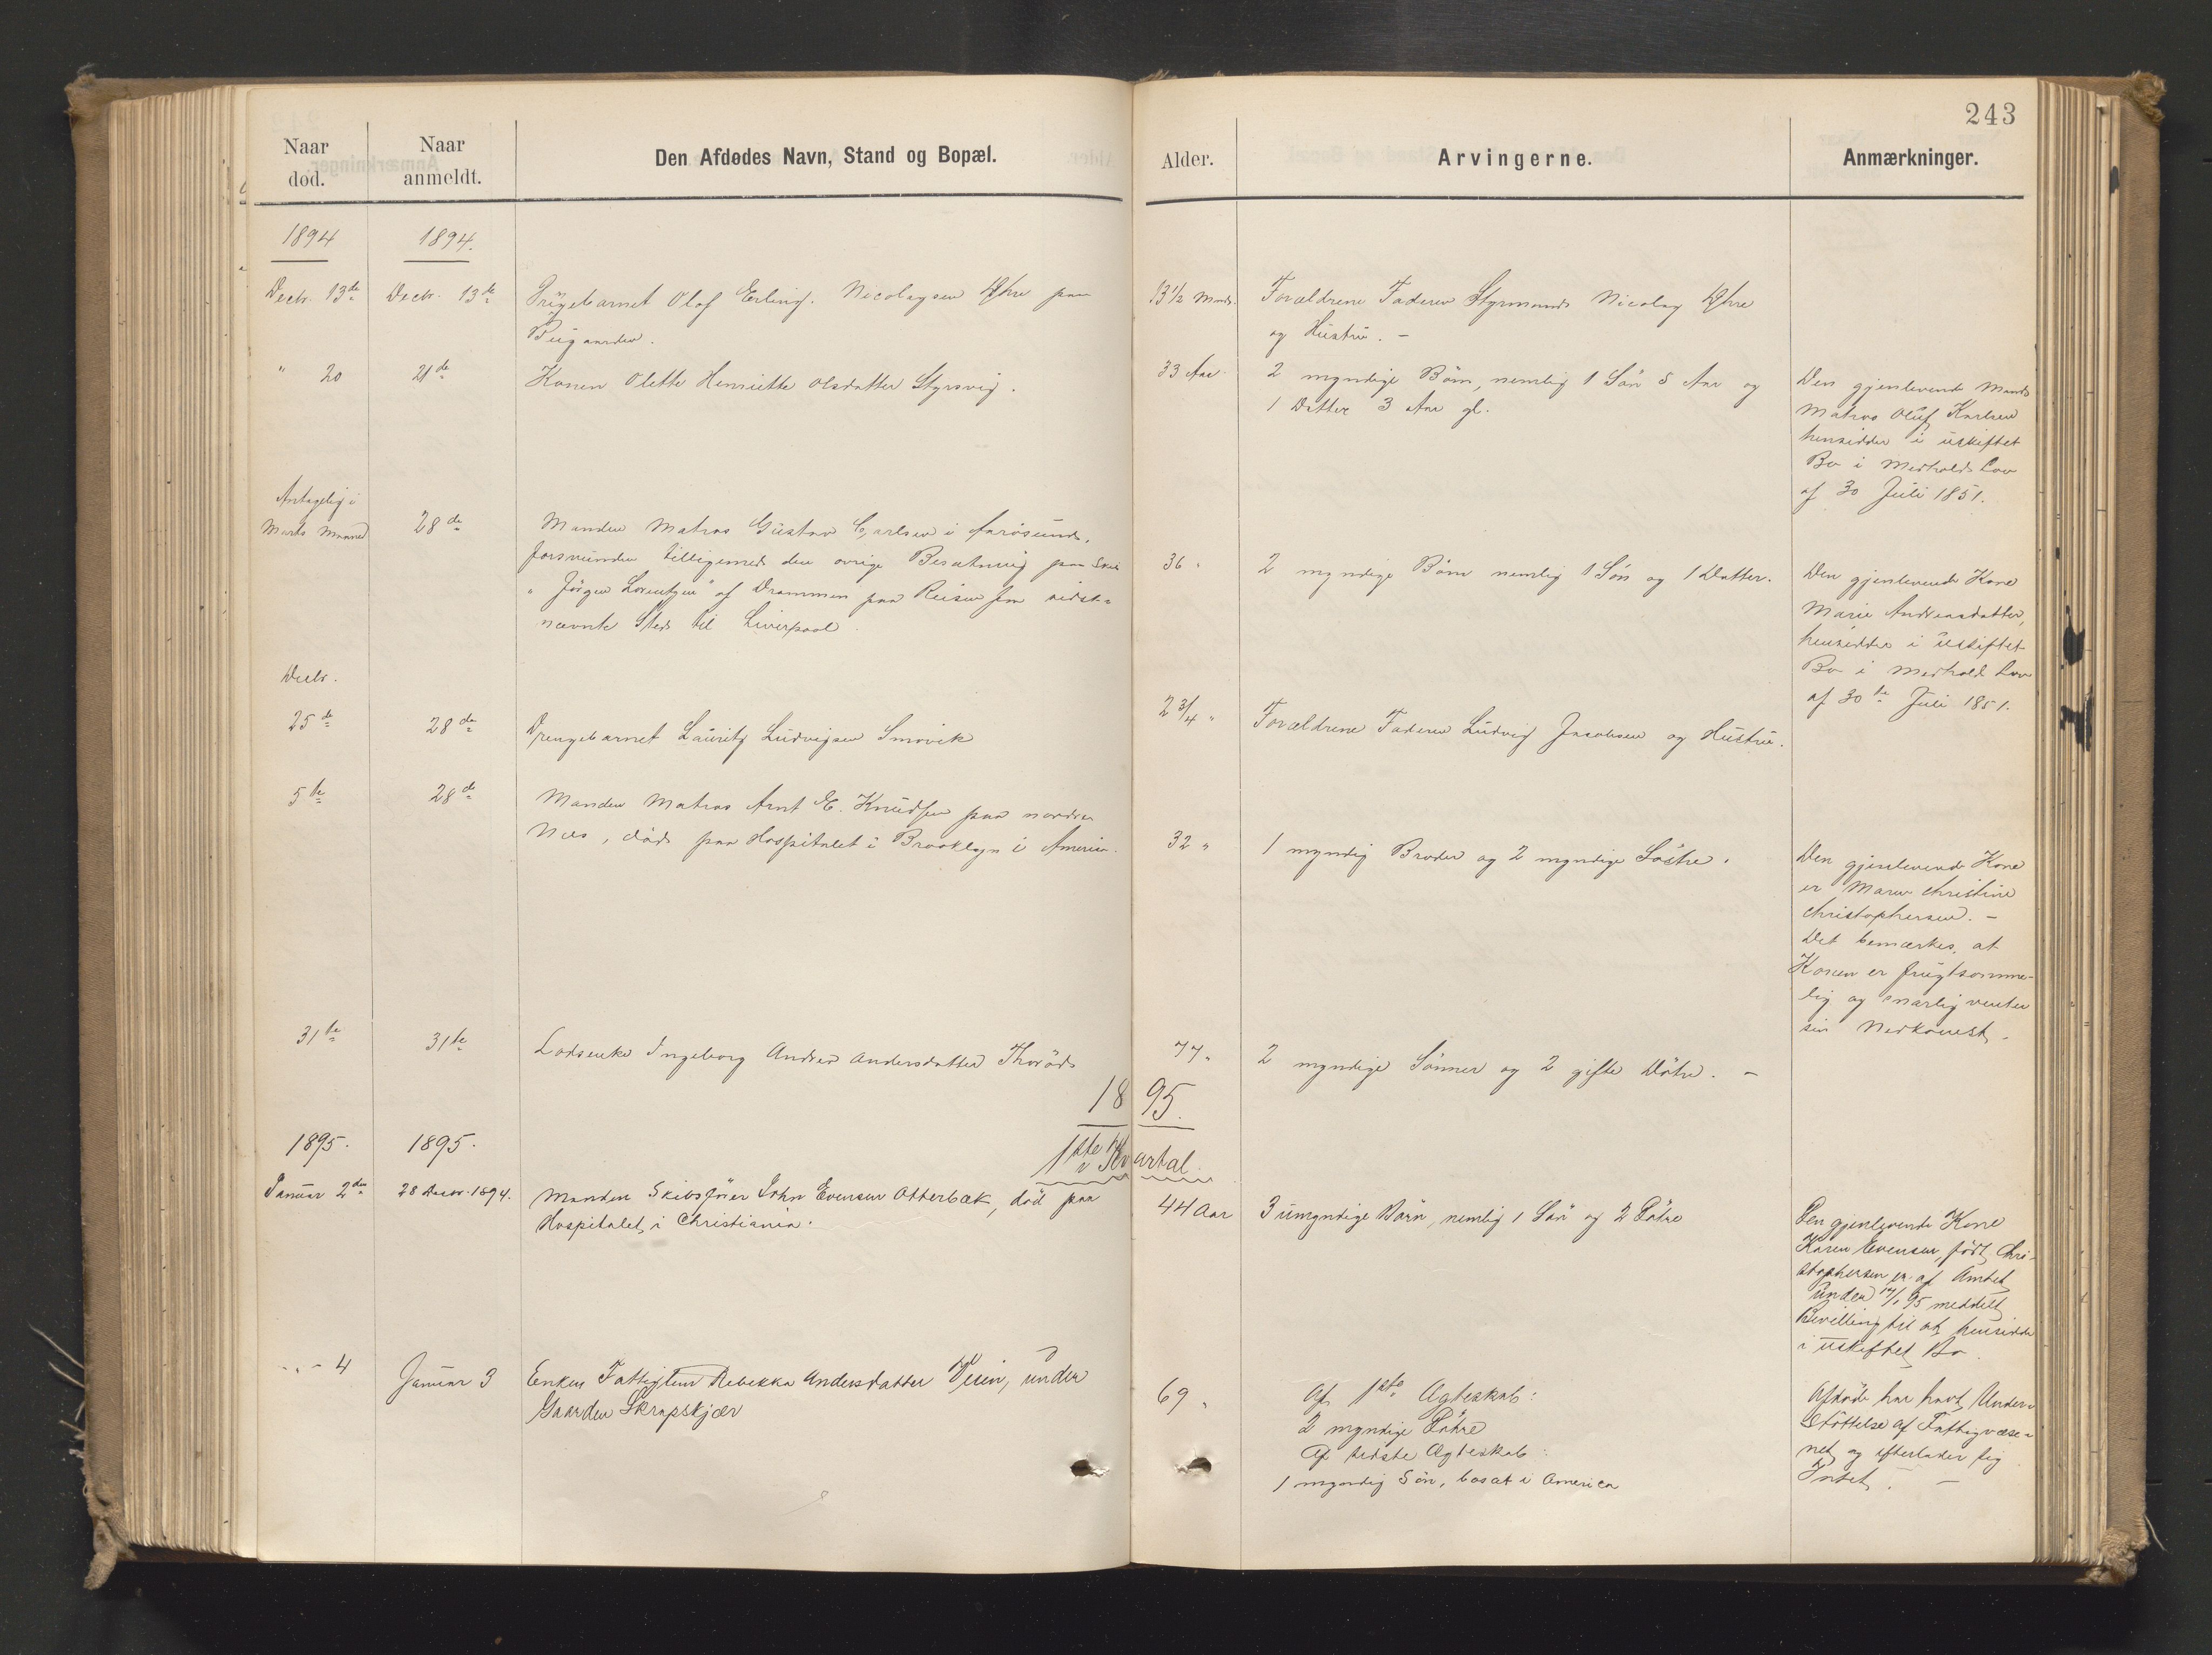 243
Naar død.
Naar anmeldt.
Den Afdødes Navn, Stand og Bopæl.
Alder.
Arvingerne.
Anmærkninger.
1894
1894.
Decbr. 13de
Decbr. 13de
Pigebarnet Olaf Erling Nicolaysen
paa
13½ Mnd.
Forældrene Faderen Styrmand Nicolay
og Hustru. –
" 20
21de
Konen Olette Henriette Olsdatter Styrsvig.
33 Aar
2 myndige Börn, nemlig 1 Sön 5 Aar og
1 Datter 3 Aar gl.
Den gjenlevende Mand
Matros Oluf Karlsen
hensidder i uskiftet
Bo i Medhold Lov
af 30 Juli 1851.
Antagelig i
Marts Maaned
28de
Manden Matros Gustav Carlsen i Aarösund,
forsvunden tilligemed den övrige Besætning paa Skib
"Jörgen Lorentzen" af Drammen paa Reisen fra sidst-
nævnte Sted til Liverpool.
36 "
2 myndige Börn nemlig 1 Sön og 1 Datter.
Den gjenlevende Kone
Marie Andreasdatter,
hensidder i uskiftet
Bo i Medhold Lov
af 30te Juli 1851.
Decbr.
25de
28de
Drengebarnet Lauritz Ludvigsen Smövik
2 3/4 "
Forældrene Faderen Ludvig Jacobsen og Hustru.
5te
28de
Manden Matros Arnt E. Knudsen paa nordre
Næs, död paa Hospitalet i Brooklyn i America.
32 "
1 myndig Broder og 2 myndige Söstre.
Den gjenlevende Kone
er Maren Christine
Christophersen. –
Det bemærkes, at
Konen er frugtsomme-
lig og snarlig venter
sin Nedkomst.
31te
31te
Lodsenke Ingeborg Andrea Andersdatter Thoröd
77 "
2 myndige Sönner og 2 gifte Dötre. –
1895.
1ste Kvartal.
1895.
1895.
Januar 2den
28 Decbr. 1894.
Manden Skibsförer John Evensen Otterbæk, död paa
Hospitalet i Christiania.
44 Aar
3 umyndige Börn, nemlig 1 Sön og 2 Dötre
Den gjenlevende Kone
Karen Evensen, födt Chri-
stophersen er af Amtet
under 17/1 95 meddelt
Bevilling til at hensidde
i uskiftet Bo.
- " - 4
Januar 3
Enken Fattiglem Rebekka Andersdatter Veien, under
Gaarden Skrapskjær
69 "
Af 1ste Ægteskab:
2 myndige Dötre
Af sidste Ægteskab:
1 myndig Sön, bosat i America
Afdöde har havt Under-
stöttelse af Fattigvæse-
net og efterlader sig
Intet. –